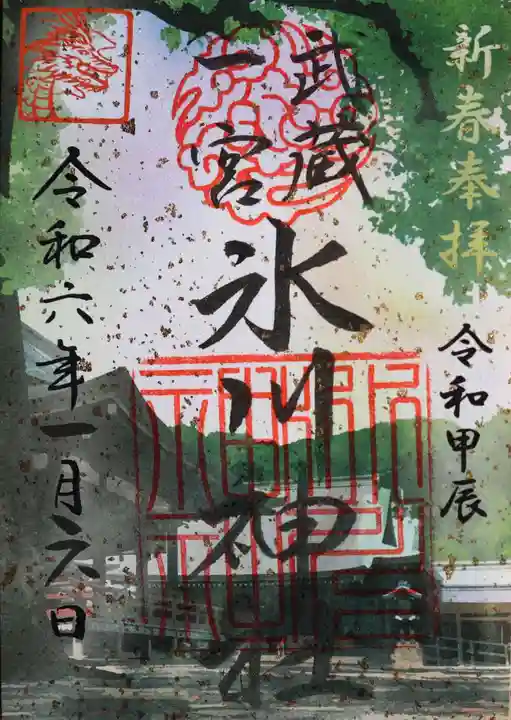 新春奉拝
令和甲辰
武蔵
一宮
氷川神社
令和六年一月六日